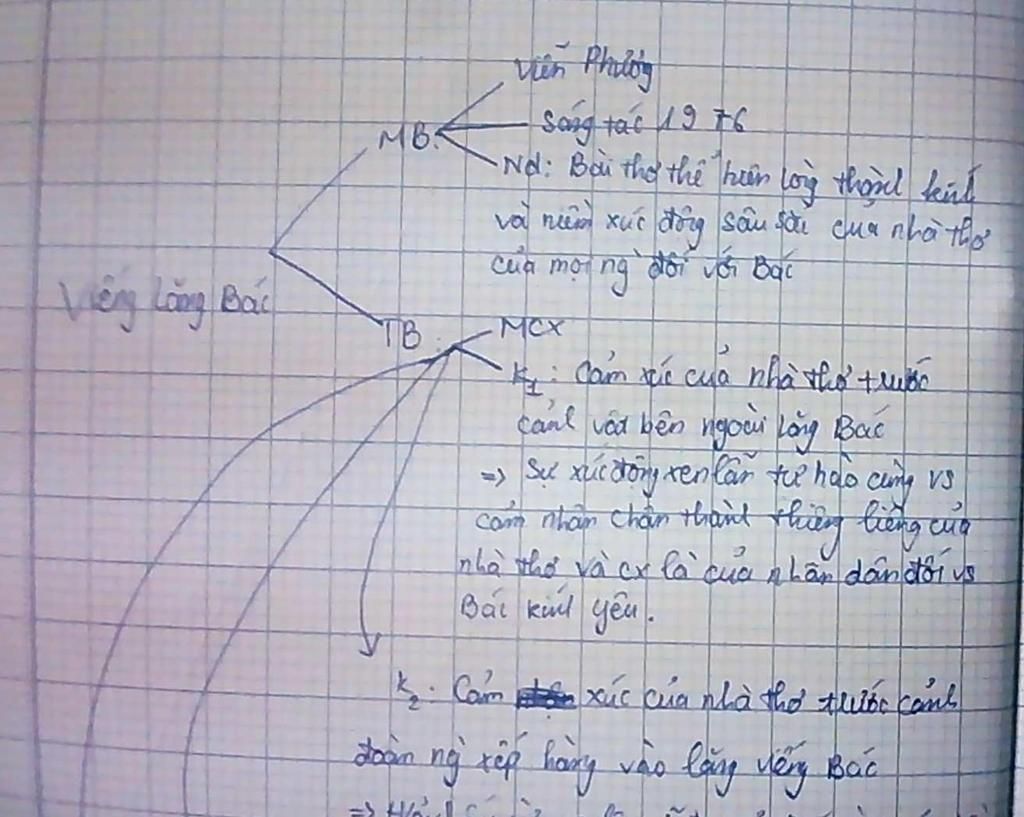 Viễn Phương
Sáng tác 1976
MB:
Nd: Bài thơ thể hiện lòng thành kính
và niềm xúc động sâu sắc của nhà thơ
của mọi ng` đối với Bác
Viếng lăng Bác
TB
MCX
K1: Cảm xúc của nhà thơ trước
cảnh vật bên ngoài lăng Bác
=> Sự xúc động xen lẫn tự hào cùng vs
cảm nhận chân thành thiêng liêng của
nhà thơ và cx là của nhân dân đối vs
Bác kính yêu.
K2: Cảm xúc của nhà thơ trước cảnh
đoàn ng` xếp hàng vào lăng viếng Bác
=>